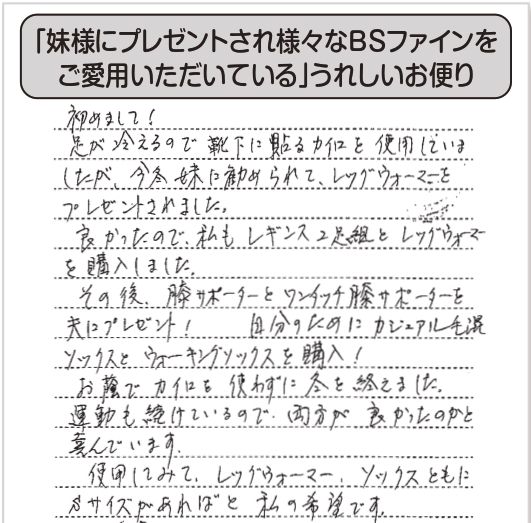 「妹様にプレゼントされ様々なBSファインを
ご愛用いただいている」うれしいお便り
初めまして！
足が冷えるので靴下に貼るカイロを使用していま
したが、今冬妹に勧められて、レッグウォーマーを
プレゼントされました。
良かったので、私もレギンス2足組とレッグウォーマー
を購入しました。
その後、膝サポーターとワンタッチ膝サポーターを
夫にプレゼント！ 自分のためにカジュアル毛混
ソックスとウォーキングソックスを購入！
お蔭でカイロを使わずに冬を終えました。
運動も続けているので、両方が良かったのかと
喜んでいます。
使用してみて、レッグウォーマー、ソックスともに
Sサイズがあればと私の希望です。